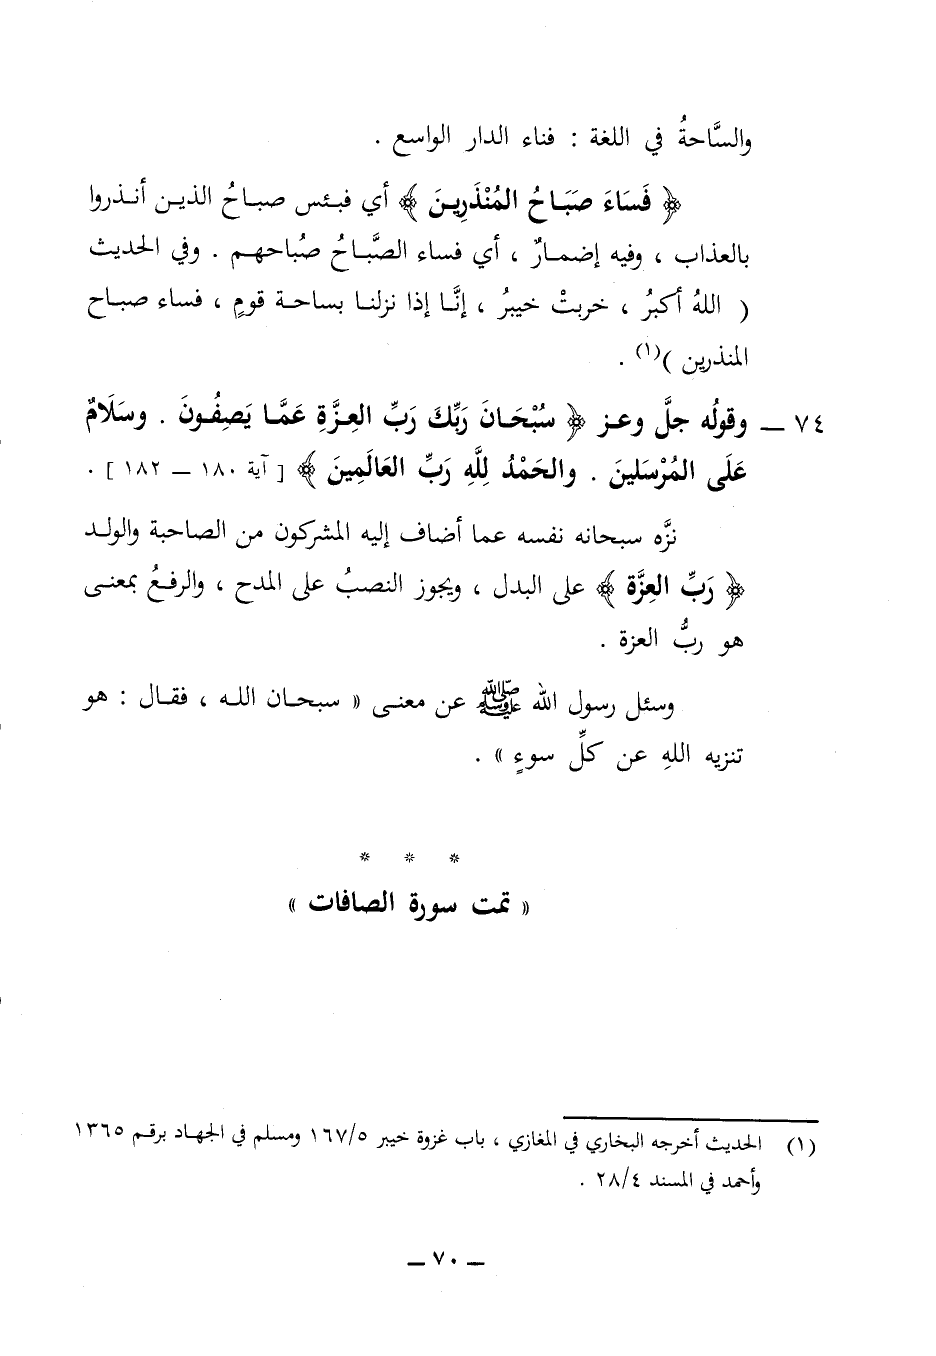 والسَّاحةُ في اللغة : فناء الدار الواسع .
﴿ فَسَاءَ صَبَاحُ المُنْذَرِينَ ﴾ أي فبئس صباحُ الذين أنذروا
بالعذاب ، وفيه إضمارٌ ، أي فساء الصَّباحُ صُباحهم . وفي الحديث
( اللهُ أكبرُ ، خربتْ خيبرُ ، إنَّا إذا نزلنا بساحة قومٍ ، فساء صباح
المنذرين )(١) .
٧٤ ــ وقولُه جلَّ وعز ﴿ سُبْحَانَ رَبِّكَ رَبِّ العِزَّةِ عَمَّا يَصِفُونَ . وسَلَامٌ
عَلَى المُرْسَلينَ . والحَمْدُ لِلَّهِ رَبِّ العَالَمِينَ ﴾ [ آية ١٨٠ ــ ١٨٢ ] .
نزَّه سبحانه نفسه عما أضاف إليه المشركون من الصاحبة والولد
﴿ رَبِّ العِزَّة ﴾ على البدل ، ويجوز النصبُ على المدح ، والرفعُ بمعنى
هو ربُّ العزة .
وسئل رسول الله ﷺ عن معنى « سبحان الله ، فقال : هو
تنزيه اللهِ عن كلِّ سوءٍ » .
* * *
« تمت سورة الصافات »
(١) الحديث أخرجه البخاري في المغازي ، باب غزوة خيبر ١٦٧/٥ ومسلم في الجهاد برقم ١٣٦٥
وأحمد في المسند ٢٨/٤ .
ــ ٧٠ ــ